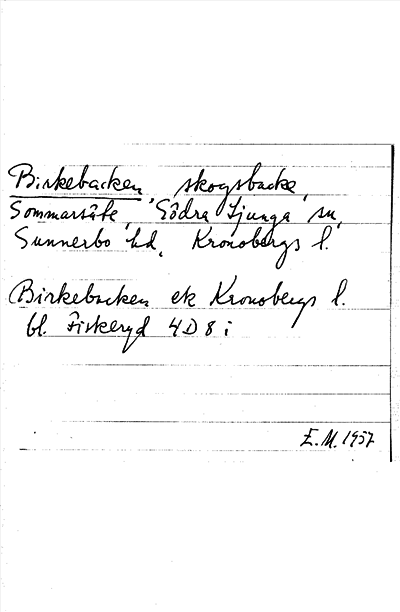 Birkebacken, skogsbacke,
Sommarsäte, Södra Ljunga sn,
Sunnerbo hd, Kronobergs l.
Birkebacken ek Kronobergs l.
bl. Fiskeryd 4D 8 i
E.M. 1957